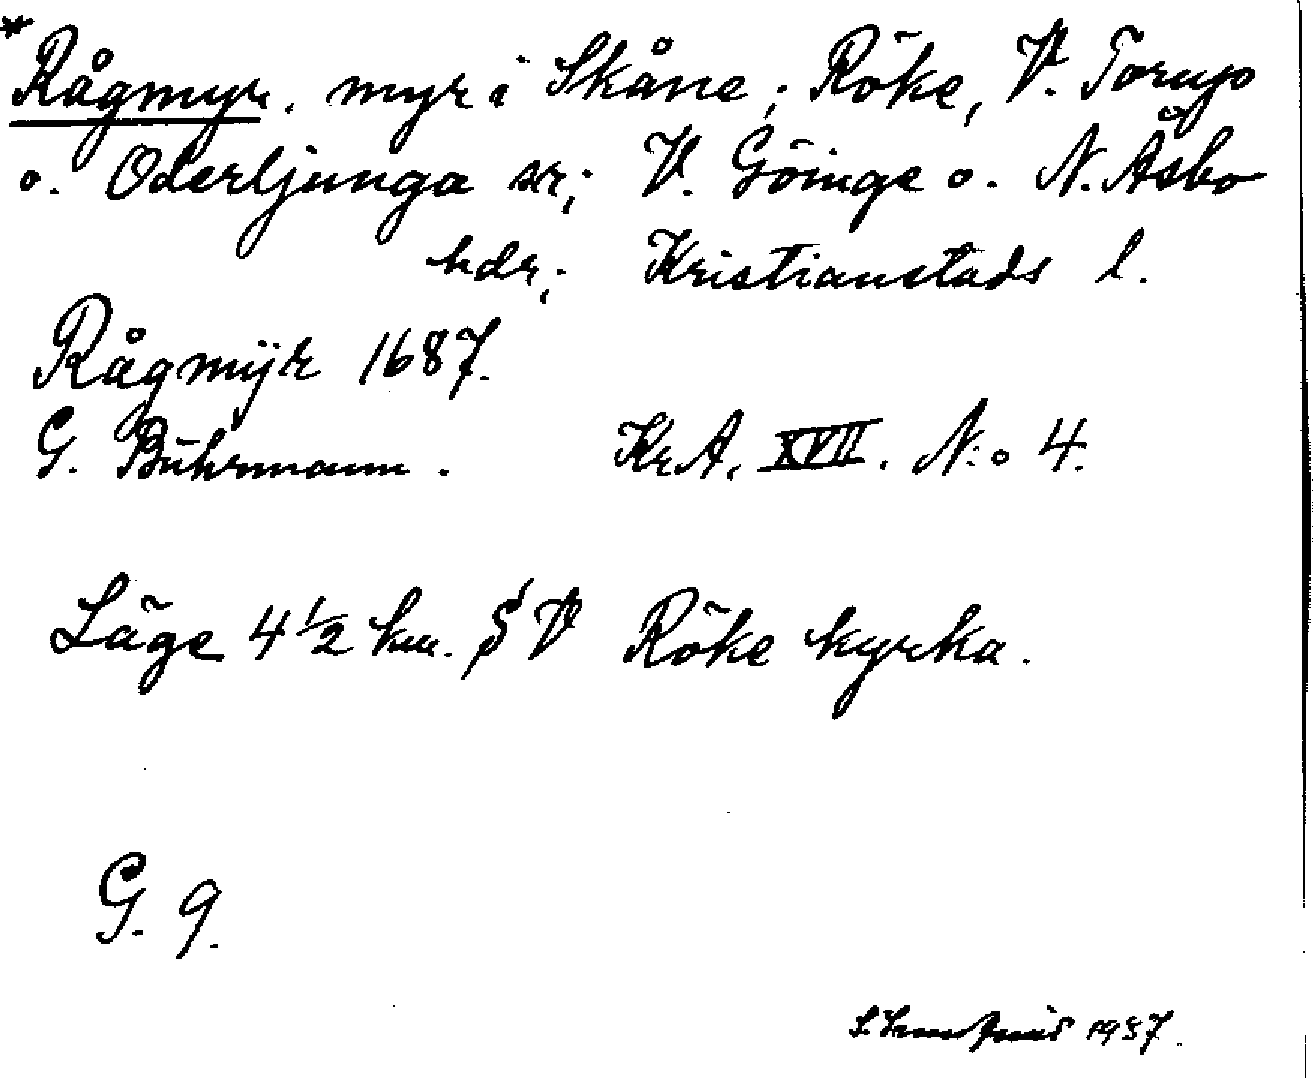 *Rågmyr. myr i Skåne; Röke, V. Torup
o. Oderljunga sr; V. Göinge o. N. Åsbo
hdr; Kristianstads l.
Rågmÿr 1687.
G. Buhrmann. Kr.A. XVII. N:o 4.
Läge 4½ km. SV Röke kyrka.
G. 9.
1937.